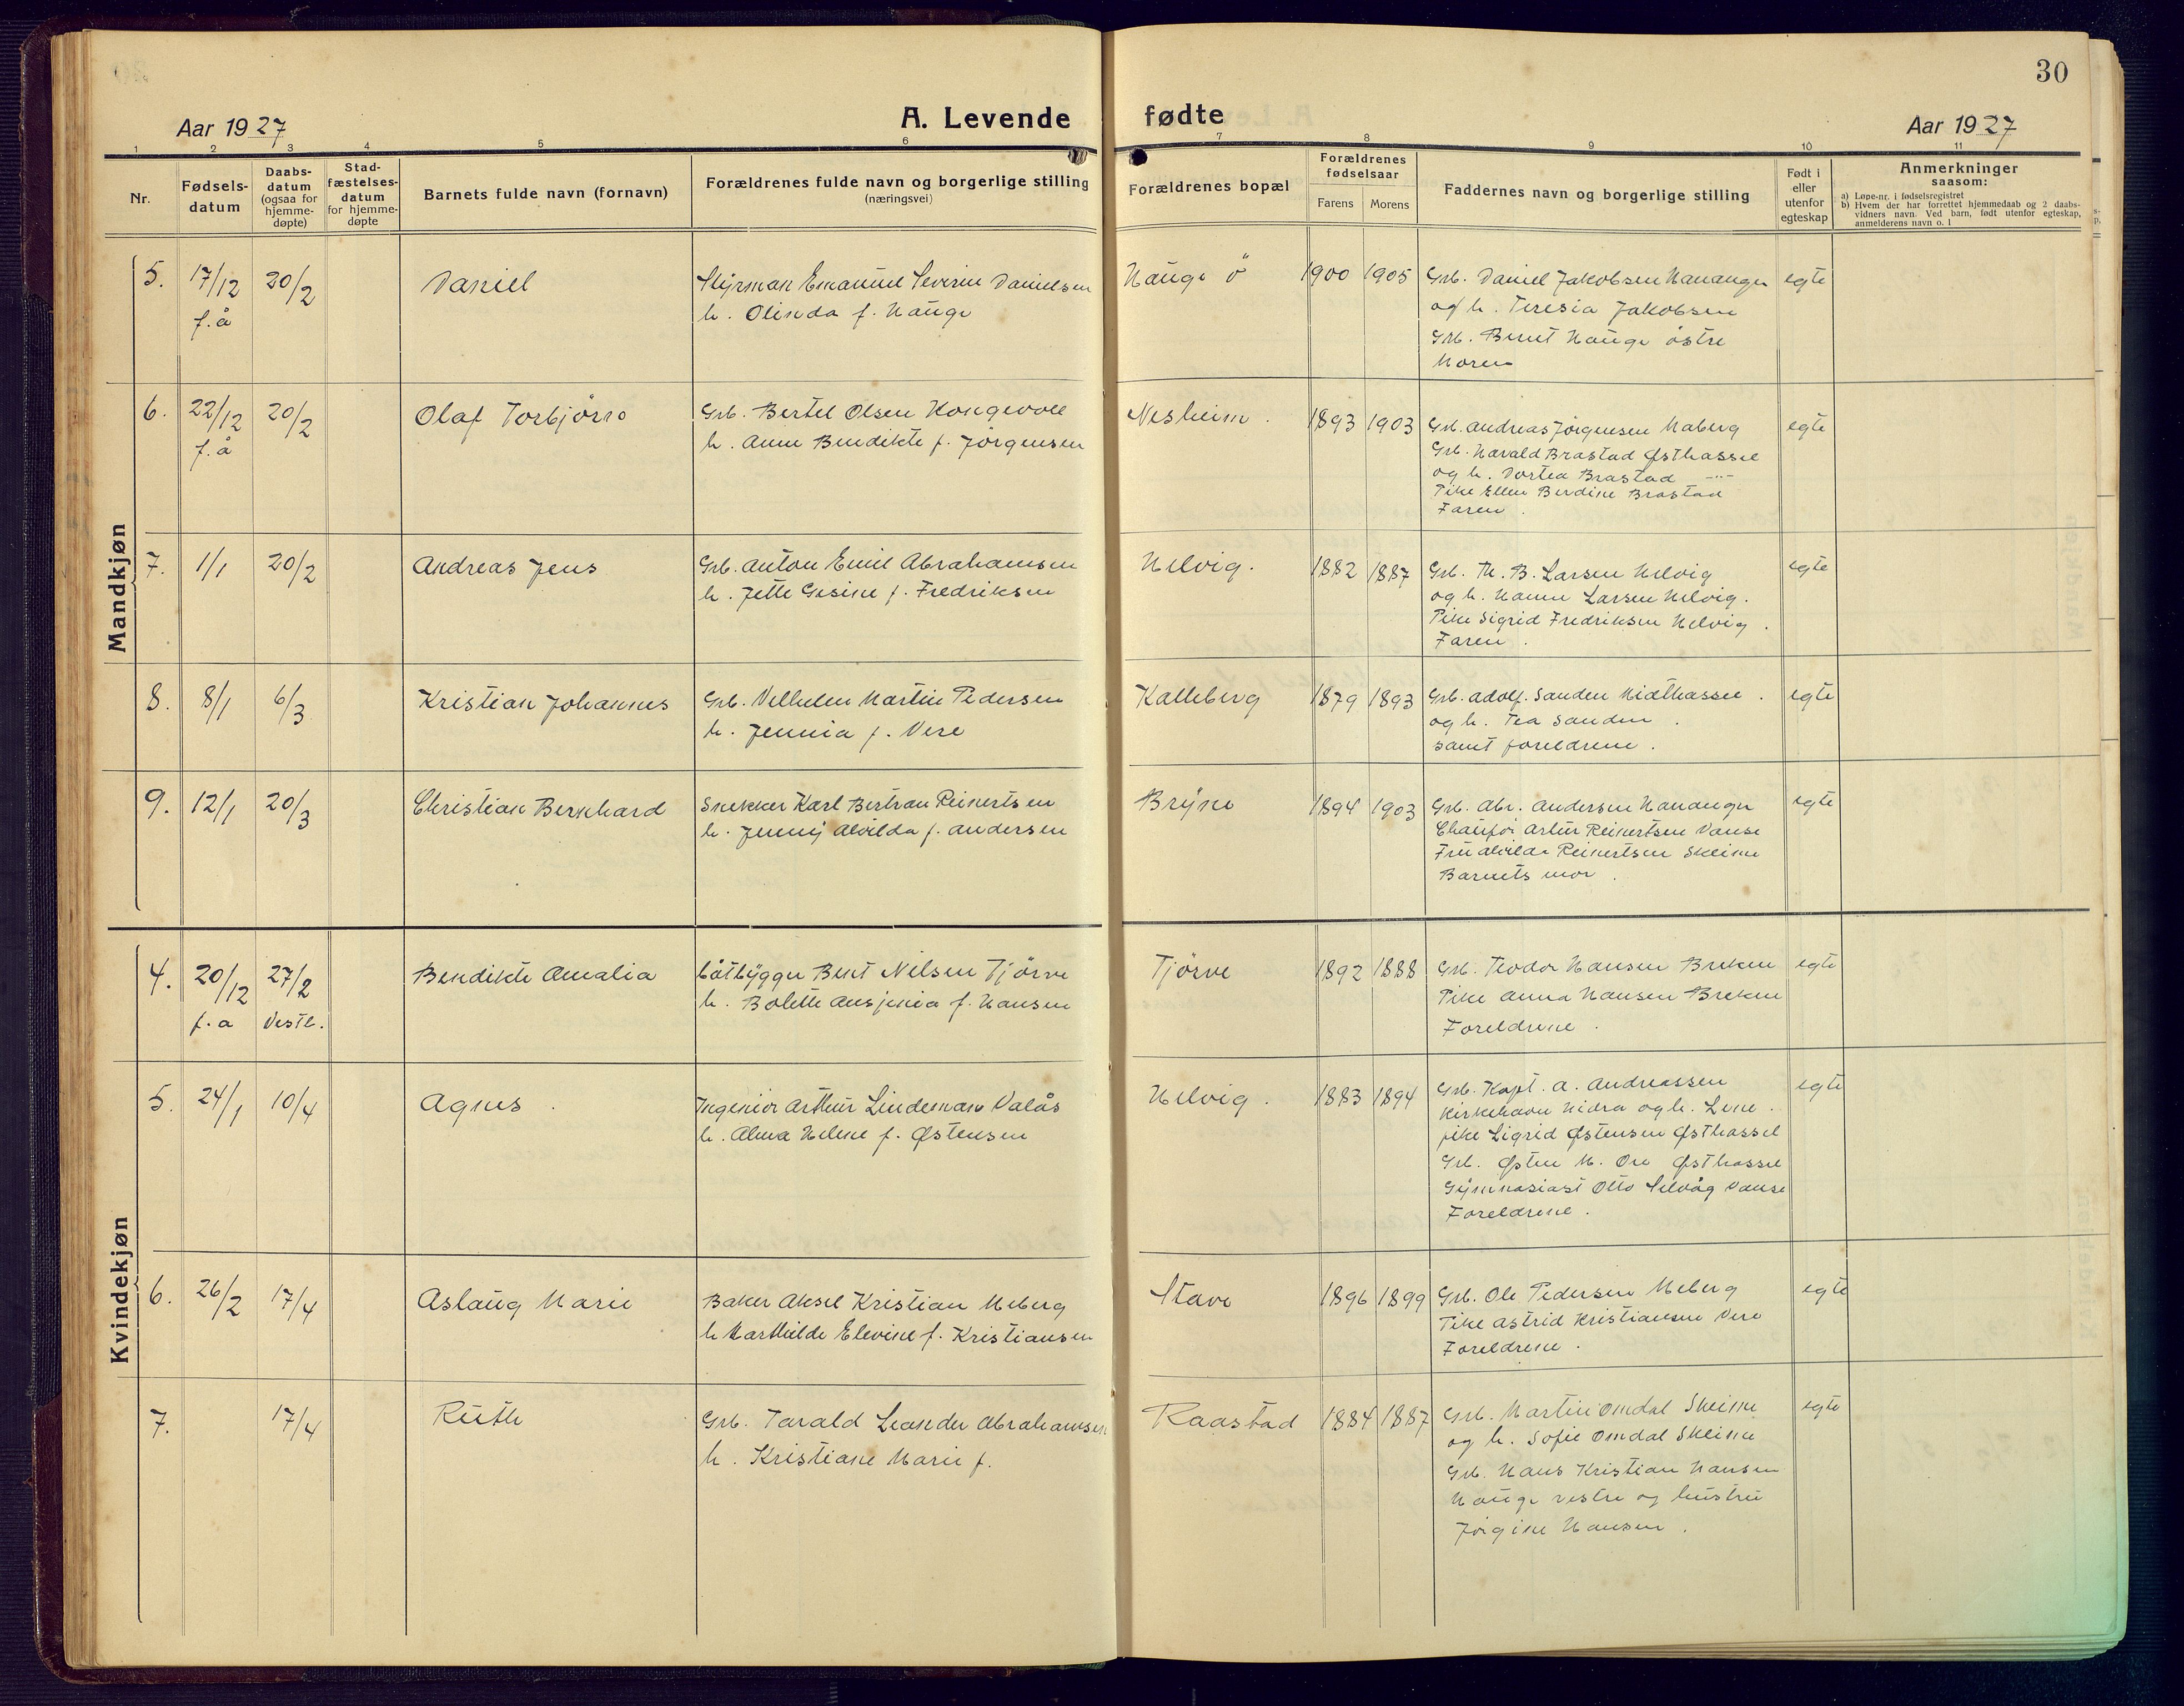 30
A. Levende fødte
Aar 1927
Aar 1927
1 2 3 4 5 6 7 8 9 10 11
Nr.
Fødsels-datum
Daabs-datum (ogsaa for hjemme-døpte)
Stad-fæstelses-datum for hjemme-døpte
Barnets fulde navn (fornavn)
Forældrenes fulde navn og borgerlige stilling (næringsvei)
Forældrenes bopæl
Forældrenes fødselsaar
Farens Morens
Faddernes navn og borgerlige stilling
Født i eller utenfor egteskap
Anmerkninger
saasom:
a) Løpe-nr. i fødselsregistret
b) Hvem der har forrettet hjemmedaab og 2 daabs-vidners navn. Ved barn, født utenfor egteskap, anmelderens navn o. l
Mandkjøn
5. 17/12 f. å 20/2 Daniel
Styrman Emanuel Severin Danielsen
h. Olinda f. Hauge
Hauge ö 1900 1905
Grb. Daniel Jakobsen Hananger
og h. Teresia Jakobsen
Grb. Berut Hauge østre
Moren
egte
6. 22/12 f. å 20/2 Olaf Torbjörn
Grb. Bertel Olsen Kongevoll
h. Anne Bendikte f. Jörgensen
Nesheim. 1893 1903
Grb. Andreas Jörgensen Maberg
Grb. Harald Brastad Østhassel
og h. Dortea Brastad -"-
Pike Ellen Berdine Brastad
Faren.
egte
7. 1/1 20/2 Andreas Jens
Grb. Anton Emil Abrahamsen
h. Jette Gesine f. Fredriksen
Helvig. 1882 1887
Grb. Th. B. Larsen Helvig
og h. Hanne Larsen Helvig.
Pike Sigrid Fredriksen Helvig.
Faren.
egte
8. 8/1 6/3 Kristian Johannes
Grb. Velhelm Martin Pedersen
h. Jennia f. Vere
Kalleberg 1879 1893
Grb. Adolf. Sanden Midthassel.
og h. Tea Sanden.
samt foreldrene.
egte
9. 12/1 20/3 Christian Bernhard
Snekker Karl Bertran Reinertsen
h. Jenny Alvilda f. Andersen
Bryne 1894 1903
Grb. Abr. Andersen Hananger
Chaufför Artur Reinertsen Vanse
Fru Alvilda Reinertsen Skeime
Barnets mor.
egte
Kvindekjøn
4. 20/12 f. a 27/2 Vestl. Bendikte Amalia
båtbygger Bent Nilsen Tjörve
h. Bolette Ansjenia f. Hansen
Tjörve 1892 1888
Grb. Teodor Hansen Brekne
Pike Anna Hansen Brekne
Foreldrene.
egte
5. 24/1 10/4 Agnes.
Ingeniör Arthur Lindeman Valås
h. Alma Helene f. Østensen
Helvig. 1883 1894
Grb. Kapt. A. Andreassen
Kirkehavn Hidra og h. Lene.
pike Sigrid Østensen Østhassel
Grb. Østen M. Ore Østhassel
Gymnasiast Otto Selvåg Vanse
Foreldrene.
egte
6. 26/2 17/4 Aslaug Marie
Baker Aksel Kristian Meberg
h Marthilde Elevine f. Kristiansen
Stave 1896 1899
Grb. Ole Pedersen Meberg
Pike Astrid Kristiansen Vere
Foreldrene.
egte
7. 17/4 Ruth
Grb. Tarald Leander Abrahamsen
h. Kristiane Marie f.
Raastad 1884 1887
Grb. Martin Omdal Skeime
og h. Sofie Omdal Skeime
Grb. Hans Kristian Hansen
Hauge vestre og hustru
Jörgine Hansen.
egte